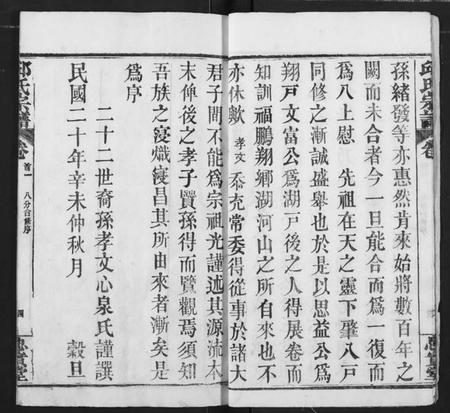 孫緒發等亦惠然肯來始將數百年之
闕而未合者今一旦能合而爲一復而
爲八上慰 先祖在天之靈下肇八戸
同修之漸誠盛舉也於是以思益公爲
翔戸文富公爲湖戸後之人得展卷而
知訓福鵬翔鄉湖河山之所自來也不
亦休歟 孝文 忝充常委得從事於諸大
君子間不能爲宗祖光謹述其源流本
末俾後之孝子賢孫得而覽觀焉須知
吾族之寖熾寖昌其所由來者漸矣是
爲序
二十二世裔孫孝文心泉氏謹譔
民國二十年辛未仲秋月 榖旦
邱氏宗譜 卷首一 八分合修序 四